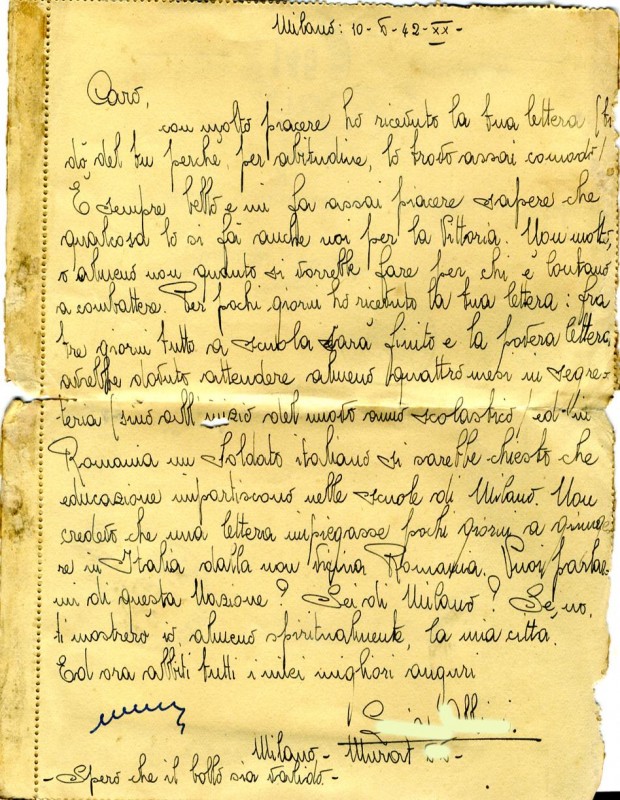 Milano: 10-6-42-XX-
Caro,
con molto piacere ho ricevuto la tua lettera (ti
do del tu perchè, per abitudine, lo trovo assai comodo)
È sempre bello e mi fa assai piacere sapere che
qualcosa lo si fa anche noi per la Vittoria. Non molto,
o almeno non quanto si vorrebbe fare per chi è lontano
a combattere. Per pochi giorni ho ricevuto la tua lettera: fra
tre giorni tutto a scuola sarà finito e la povera lettera,
avrebbe dovuto attendere almeno quattro mesi in segre-
teria (sino all'inizio del nuovo anno scolastico) ed in
Romania un soldato italiano si sarebbe chiesto che
educazione impartiscono nelle scuole di Milano. Non
credevo che una lettera impiegasse pochi giorni a giunge
re in Italia dalla non vicina Romania. Vuoi parlar
mi di questa Nazione? Sei di Milano? Se, no,
ti mostrerò io, almeno spiritualmente, la mia città.
Ed ora abbiti tutti i miei migliori auguri
Milano- Murat
- Spero che il bollo sia valido. -